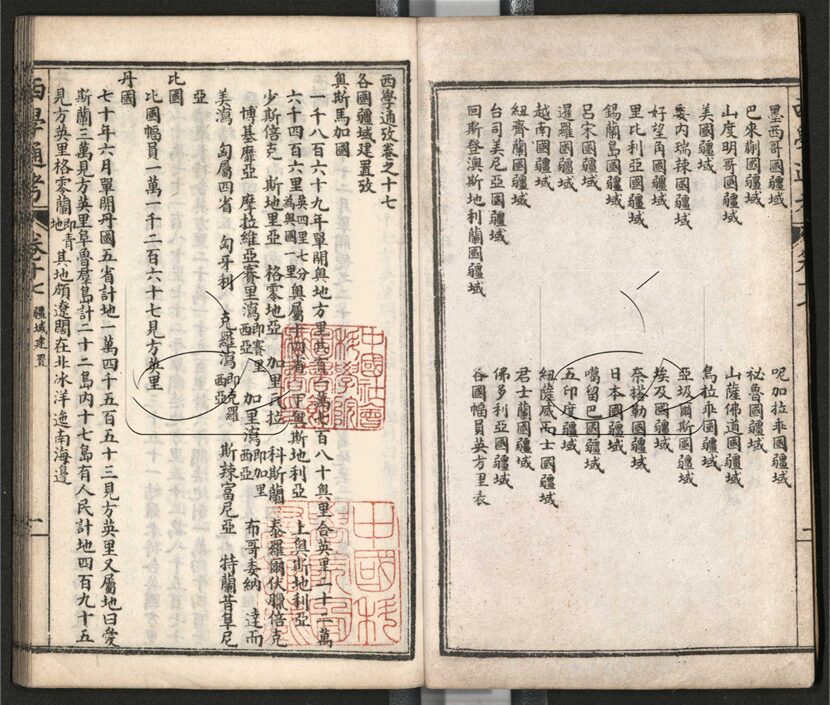 墨西哥國疆域
巴來蒯國疆域
山度明哥國疆域
美國疆域
委內瑞辣國疆域
好望角國疆域
里比利亞國疆域
錫蘭島國疆域
呂宋國疆域
暹羅國疆域
越南國疆域
紐齊蘭國疆域
台司美尼亞國疆域
回斯登澳斯地利蘭國疆域
呢加拉乖國疆域
祕魯國疆域
山薩佛道國疆域
烏拉乖國疆域
亞圾爾斯國疆域
埃及國疆域
奈塔勒國疆域
日本國疆域
噶留巴國疆域
五印度疆域
紐薩威而士國疆域
君士蘭國疆域
佛多利亞國疆域
各國幅員英方里表
西學通攷卷之十七
各國疆域建置攷
奧斯馬加國
一千八百六十九年單開奧地方里共有百萬七百八十奧里合英里二十二萬
六千四百六里英四里七分為奧國一里奧屬十四省 下奧斯地利亞 上奧斯地利亞
少斯倍克 斯地里亞 格零地亞 加里瓦拉 科斯蘭 泰羅爾伏臘倍克
博基靡亞 摩拉維亞賽里瀉即賽里西亞 加里瀉即加里西亞 布哥委納 達而
美瀉 匈屬四省 匈牙利 克羅瀉即克羅西亞 斯辣富尼亞 特蘭昔皐尼
亞
比國
比國幅員一萬一千二百六十七見方英里
丹國
七十年六月單開丹國五省計地一萬四千五百五十三見方英里又屬地曰愛
斯蘭三萬見方英里阜魯羣島計二十二島內十七島有人民計地四百九十五
見方英里格零蘭即青地其地頗遼闊在北冰洋迤南海邊
西學通考 卷十七 疆域建置 一